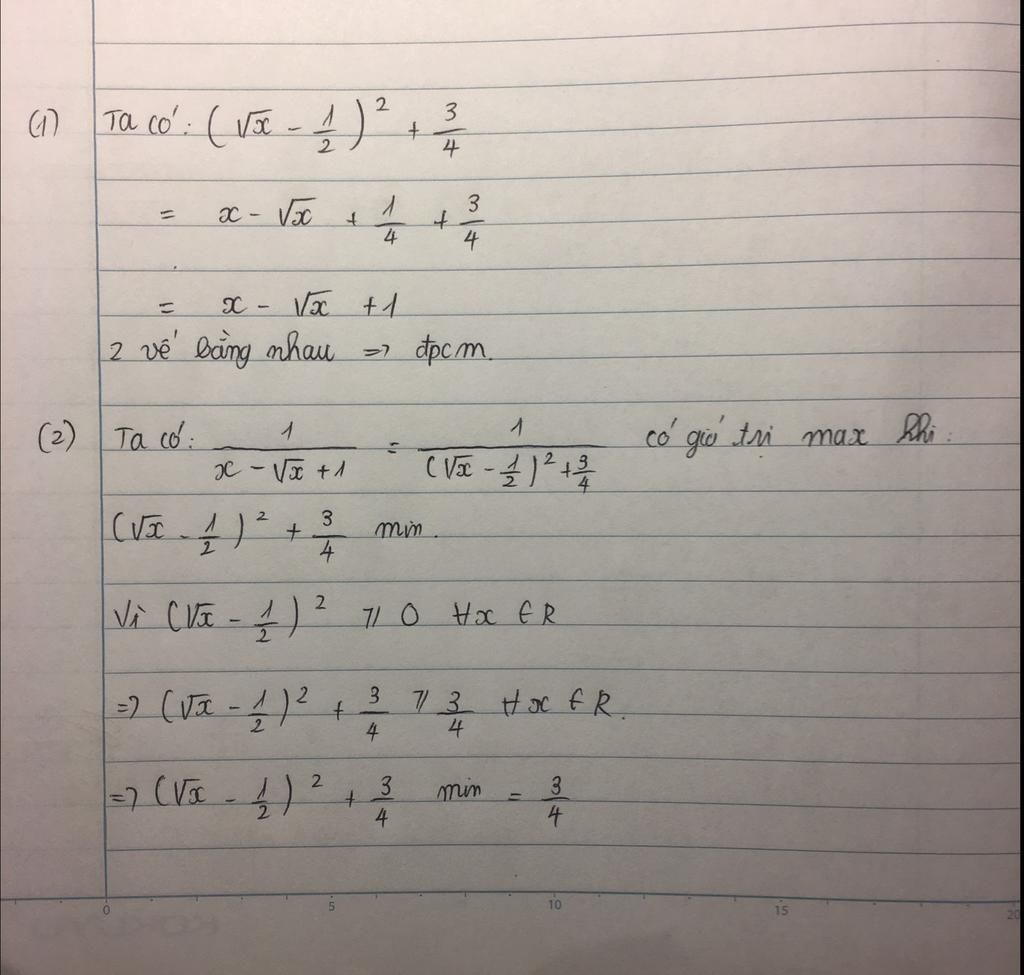 (1) Ta có: (√x - 1/2)² + 3/4
= x - √x + 1/4 + 3/4
= x - √x + 1
2 vế bằng nhau => đpcm.
(2) Ta có: 1/(x - √x + 1) = 1/((√x - 1/2)² + 3/4) có giá trị max khi:
(√x - 1/2)² + 3/4 min.
Vì (√x - 1/2)² ⩾ 0 ∀x ∈ R
=> (√x - 1/2)² + 3/4 ⩾ 3/4 ∀x ∈ R.
=> (√x - 1/2)² + 3/4 min = 3/4
0 5 10 15 20